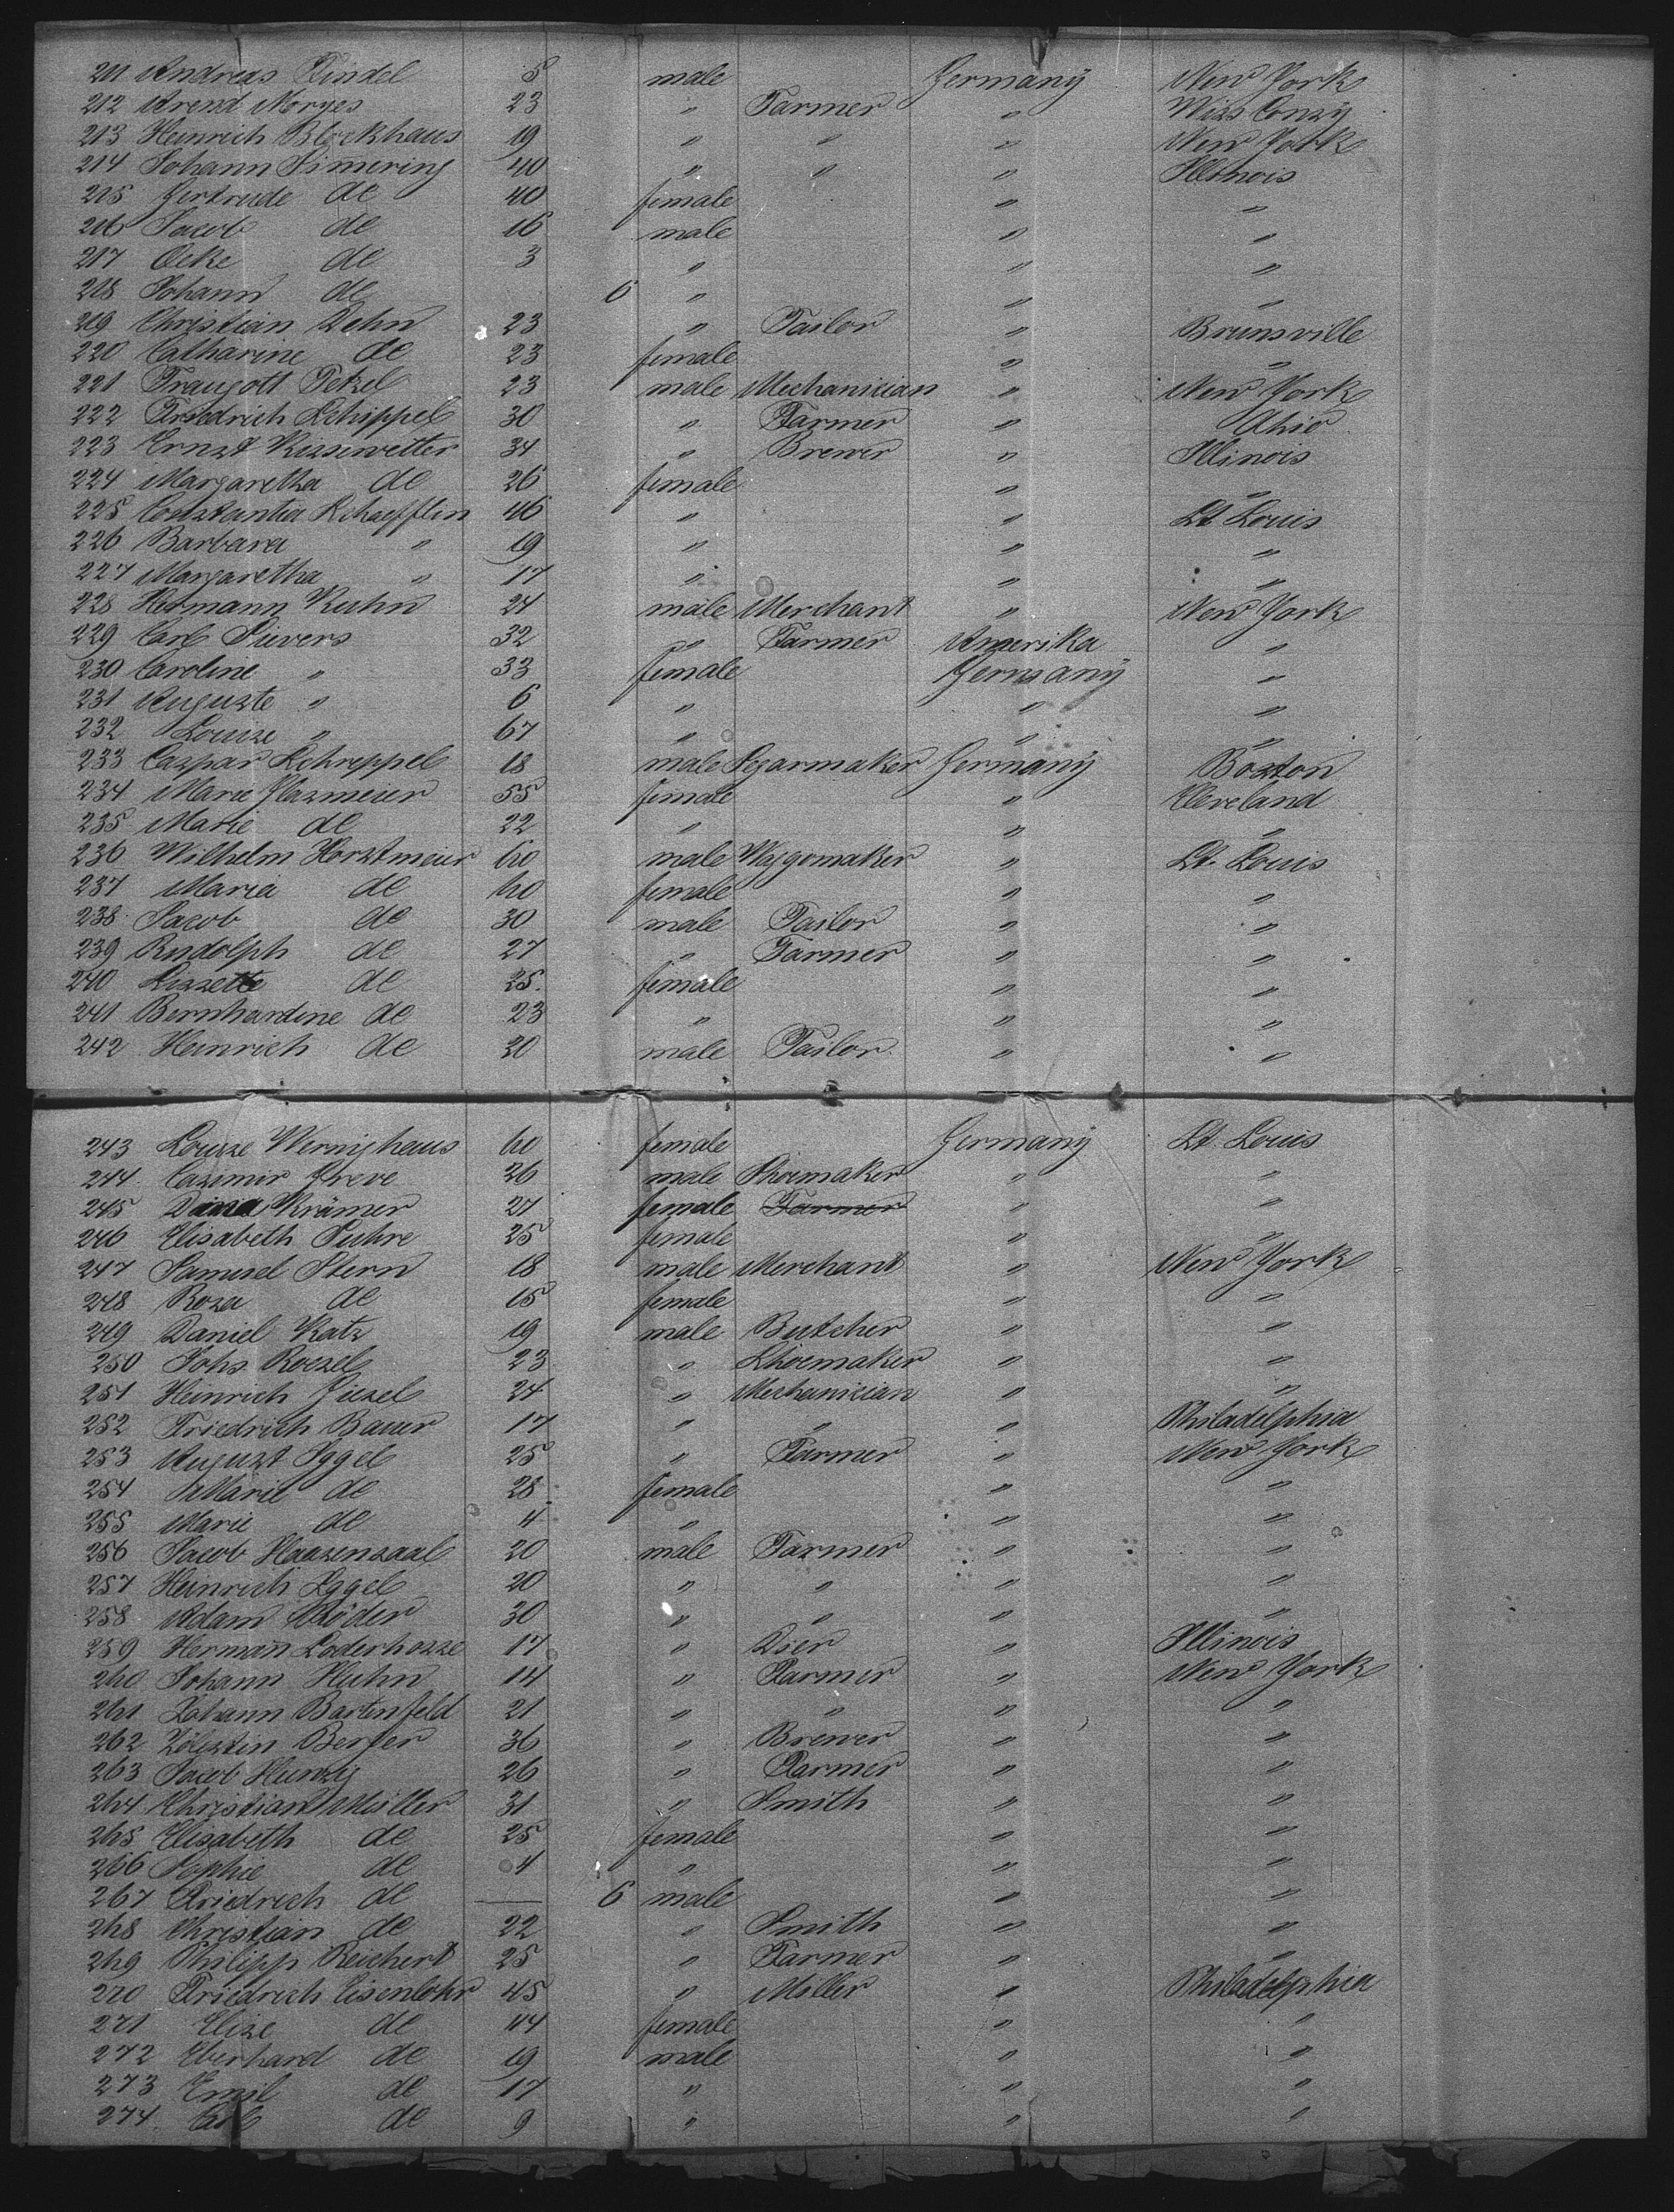 211 Andreas Findel 5 male Germany New York
212 Arend Meryes 23 " Farmer " Wiss Consy
213 Heinrich Blockhaus 19 " " " New York
214 Johann Simering 40 " " " Illinois
215 Gertrude de 40 female " "
216 Jacob de 16 male " "
217 Ocke de 3 " " "
218 Johann de 6 " " "
219 Christian Dehn 23 " Tailor " Brunsville
220 Catharine de 23 female " "
221 Traugott Petzel 23 male Mechanician " New York
222 Friedrich Schippel 30 " Farmer " Ohio
223 Ernst Kissewetter 34 " Brewer " Illinois
224 Margaretha de 26 female " "
225 Constantia Schaefflin 46 " " St Louis
226 Barbara " 19 " " "
227 Margaretha " 17 " " "
228 Hermann Kuhn 24 male Merchant " New York
229 Carl Sievers 32 " Farmer Amerika "
230 Caroline " 33 female Germany "
231 Auguste " 6 " " "
232 Louise " 67 " " "
233 Caspar Schreppel 18 male Segarmaker Germany Boston
234 Marie Glasmeier 55 female " Cleveland
235 Marie de 22 " " "
236 Wilhelm Horstmeier 60 male Waggomaker " St. Louis
237 Maria de 60 female " "
238 Jacob de 30 male Tailor " "
239 Rudolph de 27 " Farmer " "
240 Lissette de 25. female " "
241 Bernhardine de 23 " " "
242 Heinrich de 20 male Tailor " "
243 Louise Wernighaus 60 female Germany St. Louis
244 Casimir Greve 26 male Shoemaker " "
245 Dina Krämer 27 female Farmer " "
246 Elisabeth Suhre 25 female " "
247 Samuel Stern 18 male Merchant " New York
248 Rosa de 15 female " "
249 Daniel Katz 19 male Butcher " "
250 Johs. Roesel 23 " Shoemaker " "
251 Heinrich Giesel 24 " Mechanician " "
252 Friedrich Bauer 17 " " " Philadelphia
253 August Iggel 25 " Farmer " New York
254 Marie de 28 female " "
255 Marie de 4 " " "
256 Jacob Haasensaal 20 male Farmer " "
257 Heinrich Iggel 20 " " " "
258 Adam Röder 30 " " " "
259 Herman̄ Loderhosse 17 " Dier " Illinois
260 Johann Huhn 14 " Farmer " New York
261 Johann Bartenfeld 21 " " " "
262 Zölestin Berfer 36 " Brewer " "
263 Jacob Hunzig 26 " Farmer " "
264 Christian Müller 31 " Smith " "
265 Elisabeth de 25 female " "
266 Sophie de 4 " " "
267 Friedrich de — 6 male " "
268 Christian de 22 " Smith " "
269 Philipp Reichert 25 " Farmer " "
270 Friedrich Eisenlohr 45 " Miller " Philadelphia
271 Elise de 44 female " "
272 Eberhard de 19 male " "
273 Emil de 17 " " "
274 Carl de 9 " " "